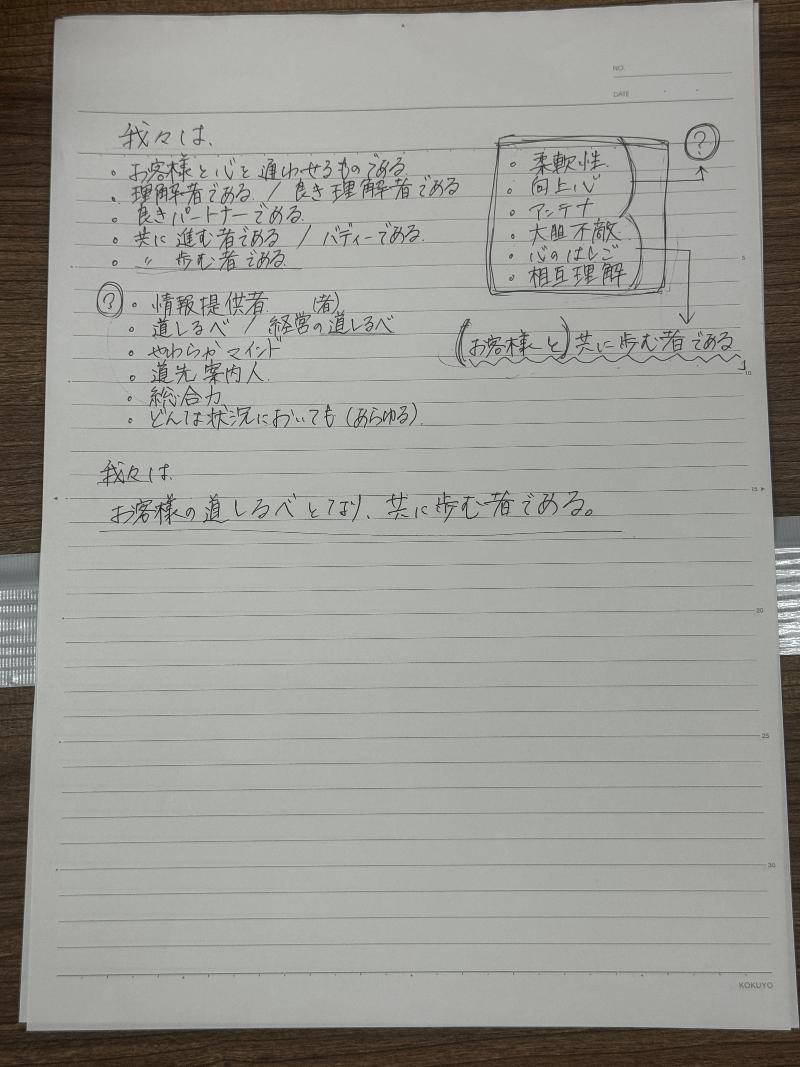 NO.
DATE
我々は、
・お客様と心を通わせるものである
・理解者である / 良き理解者である
・良きパートナーである
・共に進む者である / バディーである
・〃 歩む者である
? ・情報提供者 (者)
・道しるべ / 経営の道しるべ
・やわらかマインド
・道先案内人
・総合力
・どんな状況においても(あらゆる)
?
・柔軟性
・向上心
・アンテナ
・大胆不敵
・心のはしご
・相互理解
(お客様と)共に歩む者である
我々は
お客様の道しるべとなり、共に歩む者である。
5
10
15
20
25
30
KOKUYO